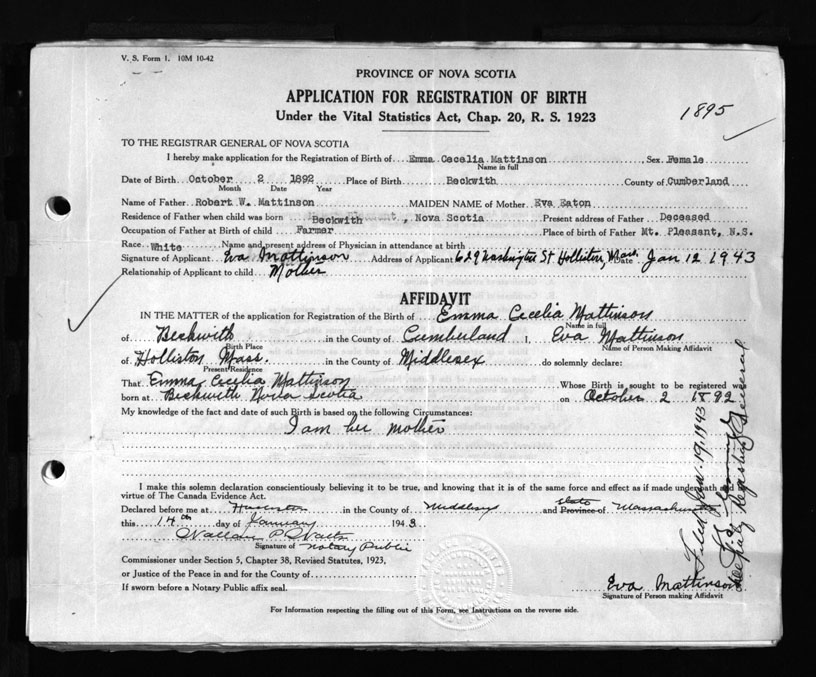 V. S. Form 1. 10M 10-42
PROVINCE OF NOVA SCOTIA
APPLICATION FOR REGISTRATION OF BIRTH
Under the Vital Statistics Act, Chap. 20, R. S. 1923
1895
TO THE REGISTRAR GENERAL OF NOVA SCOTIA
I hereby make application for the Registration of Birth of Emma Cecelia Mattinson, Sex Female
Name in full
Date of Birth October 2 1892 Place of Birth Beckwith County of Cumberland
Month Date Year
Name of Father Robert W. Mattinson MAIDEN NAME of Mother Eva Eaton
Residence of Father when child was born Beckwith, Nova Scotia Present address of Father Deceased
Occupation of Father at Birth of child Farmer Place of birth of Father Mt. Pleasant, N.S.
Race White Name and present address of Physician in attendance at birth
Signature of Applicant Eva Mattinson Address of Applicant 629 Washington St Holliston, Mass. Date Jan 12 1943
Relationship of Applicant to child Mother
AFFIDAVIT
IN THE MATTER of the application for Registration of the Birth of Emma Cecelia Mattinson
Name in full
of Beckwith in the County of Cumberland I, Eva Mattinson
Birth Place Name of Person Making Affidavit
of Holliston Mass. in the County of Middlesex do solemnly declare:
Present Residence
That Emma Cecelia Mattinson Whose Birth is sought to be registered was
born at Beckwith Nova Scotia on October 2 1892
My knowledge of the fact and date of such Birth is based on the following Circumstances:
I am her mother
I make this solemn declaration conscientiously believing it to be true, and knowing that it is of the same force and effect as if made under oath and
virtue of The Canada Evidence Act.
Declared before me at in the County of Middlesex and State Province of Massachusetts
this 14th day of January 1943
Signature of Notary Public
Commissioner under Section 5, Chapter 38, Revised Statutes, 1923,
or Justice of the Peace in and for the County of
If sworn before a Notary Public affix seal.
Eva Mattinson
Signature of Person making Affidavit
For Information respecting the filling out of this Form, see Instructions on the reverse side.
Filed Jan. 19, 1943
Deputy Registrar General